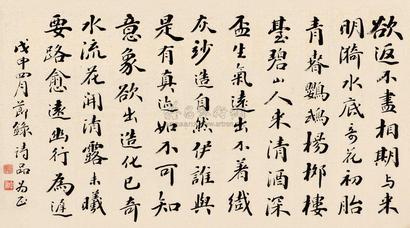 欲返不盡相期與來
明漪水底奇花初胎
青春鸚鵡楊柳樓
臺碧山人來清酒深
盃生氣遠出不著纖
灰妙造自然伊誰與
是有真迹如不可知
意象欲出造化已奇
水流花開清露未曦
要路愈遠幽行為遲
戊申四月節錄詩品